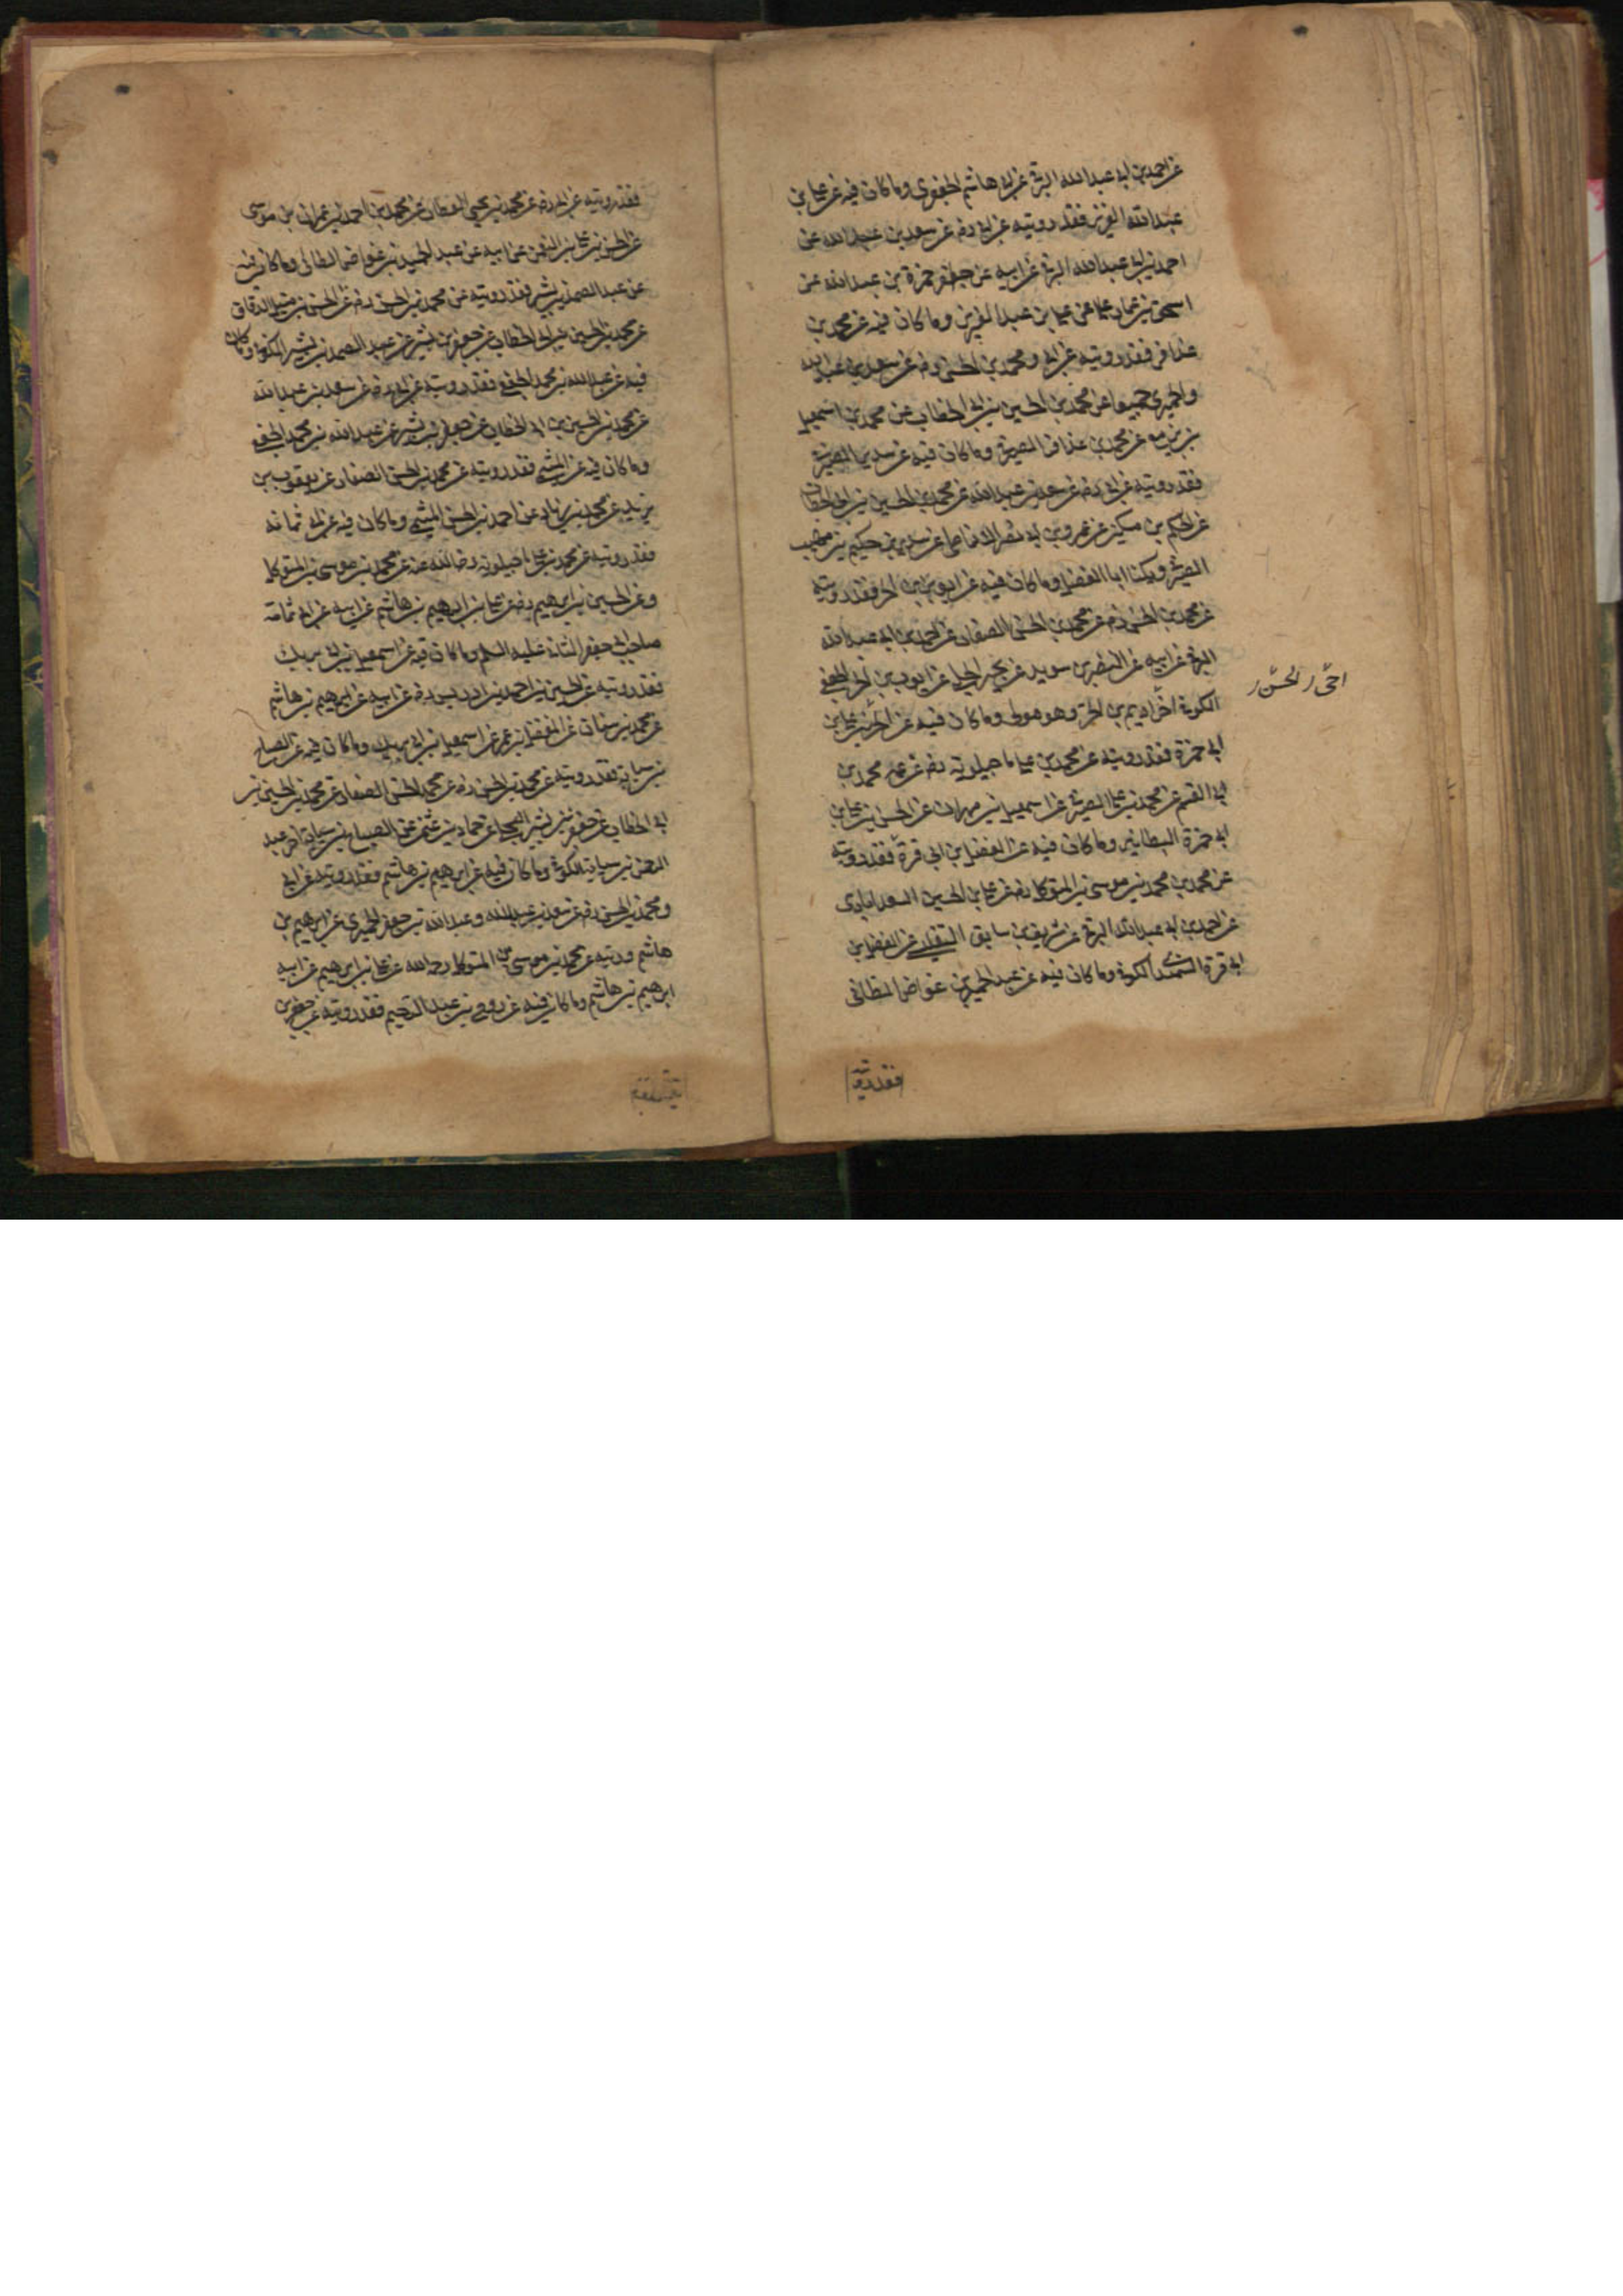 عن احمد بن ابى عبدالله البرقى عن ابى هاشم الجعفرى وما كان فيه عن على بن
عبدالله العزيز فقد رويته عن ابى رضه عن سعد بن عبدالله عن
احمد بن ابى عبدالله البرقى عن ابيه عن جعفر حمزة بن عبدالله عن
اسحق بن عمار على عن على بن عبدالعزيز وما كان فيه عن محمد بن
عذافر فقد رويته عن ابى ومحمد بن الحسن رضه عن سعد بن عبدالله
والحميرى جميعا عن محمد بن الحسين بن ابى الخطاب عن محمد بن اسمعيل
بزيع عن محمد بن عذافر الصيرفى وما كان فيه عن سدير الصيرفى
فقد رويته عن ابى رضه عن سعد بن عبدالله عن محمد بن الحسين بن ابى الخطاب
عن الحكم بن مسكين عن عمرو بن ابى نصر الانماطى عن سدير بن حكيم بن صهيب
الصيرفى ويكنا ابا الفضل وما كان فيه عن ايوب بن الحر فقد رويته
عن محمد بن الحسن رضه عن محمد بن الحسن الصفار عن احمد بن ابى عبدالله
البرقى عن ابيه عن النضر بن سويد عن يحيى الحلبى عن ايوب بن الحر الجعفى
الكوفى اخو اديم بن الحر وهو مولى وما كان فيه عن الحسن بن على بن
ابى حمزة فقد رويته عن محمد بن على ماجيلويه رضه عن عمه محمد بن
ابى القسم عن محمد بن على الصيرفى عن اسمعيل بن مهران عن الحسن بن على بن
ابى حمزة البطائنى وما كان فيه عن الفضل بن ابى قرة فقد رويته
عن محمد بن محمد بن موسى بن المتوكل رضه عن على بن الحسين السعدابادى
عن احمد بن ابى عبدالله البرقى عن شريف بن سابق التفليسى عن الفضل بن
ابى قرة السمندى الكوفى وما كان فيه عن عبدالحميد بن عواض الطائى
فقد رويته
فقد رويته عن ابى رضه عن محمد بن يحيى العطار عن محمد بن احمد بن عمران بن موسى
عن الحسن بن على بن النعمن عن ابيه عن عبدالحميد بن غواض الطائى وما كان فيه
عن عبدالصمد بن بشير فقد رويته عن محمد بن الحسن رضه عن الحسن بن متيل الدقاق
عن محمد بن الحسين بن ابى الخطاب عن جعفر بن بشير عن عبدالصمد بن بشير الكوفى وما كان
فيه عن عبدالله بن محمد الجعفى فقد رويته عن ابى رضه عن سعد بن عبدالله
عن محمد بن الحسين بن ابى الخطاب عن جعفر بن بشير عن عبدالله بن محمد الجعفى
وما كان فيه عن الميثمى فقد رويته عن محمد بن الحسن الصفار عن يعقوب بن
يزيد عن محمد بن زياد عن احمد بن الحسن الميثمى وما كان فيه عن ابى ثمامه
فقد رويته عن محمد بن على ماجيلويه رضى الله عنه عن محمد بن موسى بن المتوكل
وعن الحسين بن ابرهيم رضه عن على بن ابرهيم بن هاشم عن ابيه عن ابى ثمامه
صاحب ابى جعفر الثانى عليه السلم وما كان فيه عن اسمعيل بن ابى بريك
فقد رويته عن الحسين بن احمد بن ادريس رضه عن ابيه عن ابرهيم بن هاشم
عن محمد بن سنان عن المفضل بن عمر عن اسمعيل بن ابى بريك وما كان فيه عن الصباح
بن سيابه فقد رويته عن محمد بن الحسن رضه عن محمد الحسن الصفار عن محمد بن الحسين بن
ابى الخطاب عن جعفر بن بشير البجلى عن حماد بن عثمن عن الصباح بن سيابه اخى عبد
الرحمن بن سيابه الكوفى وما كان فيه عن ابرهيم بن هاشم فقد رويته عن ابى
ومحمد بن الحسن رضه عن سعد بن عبدالله وعبدالله بن جعفر الحميرى عن ابرهيم بن
هاشم ورويته عن محمد بن موسى بن المتوكل رحمه الله عن على بن ابرهيم عن ابيه
ابرهيم بن هاشم وما كان فيه عن روح بن عبدالرحيم فقد رويته عن جعفر بن